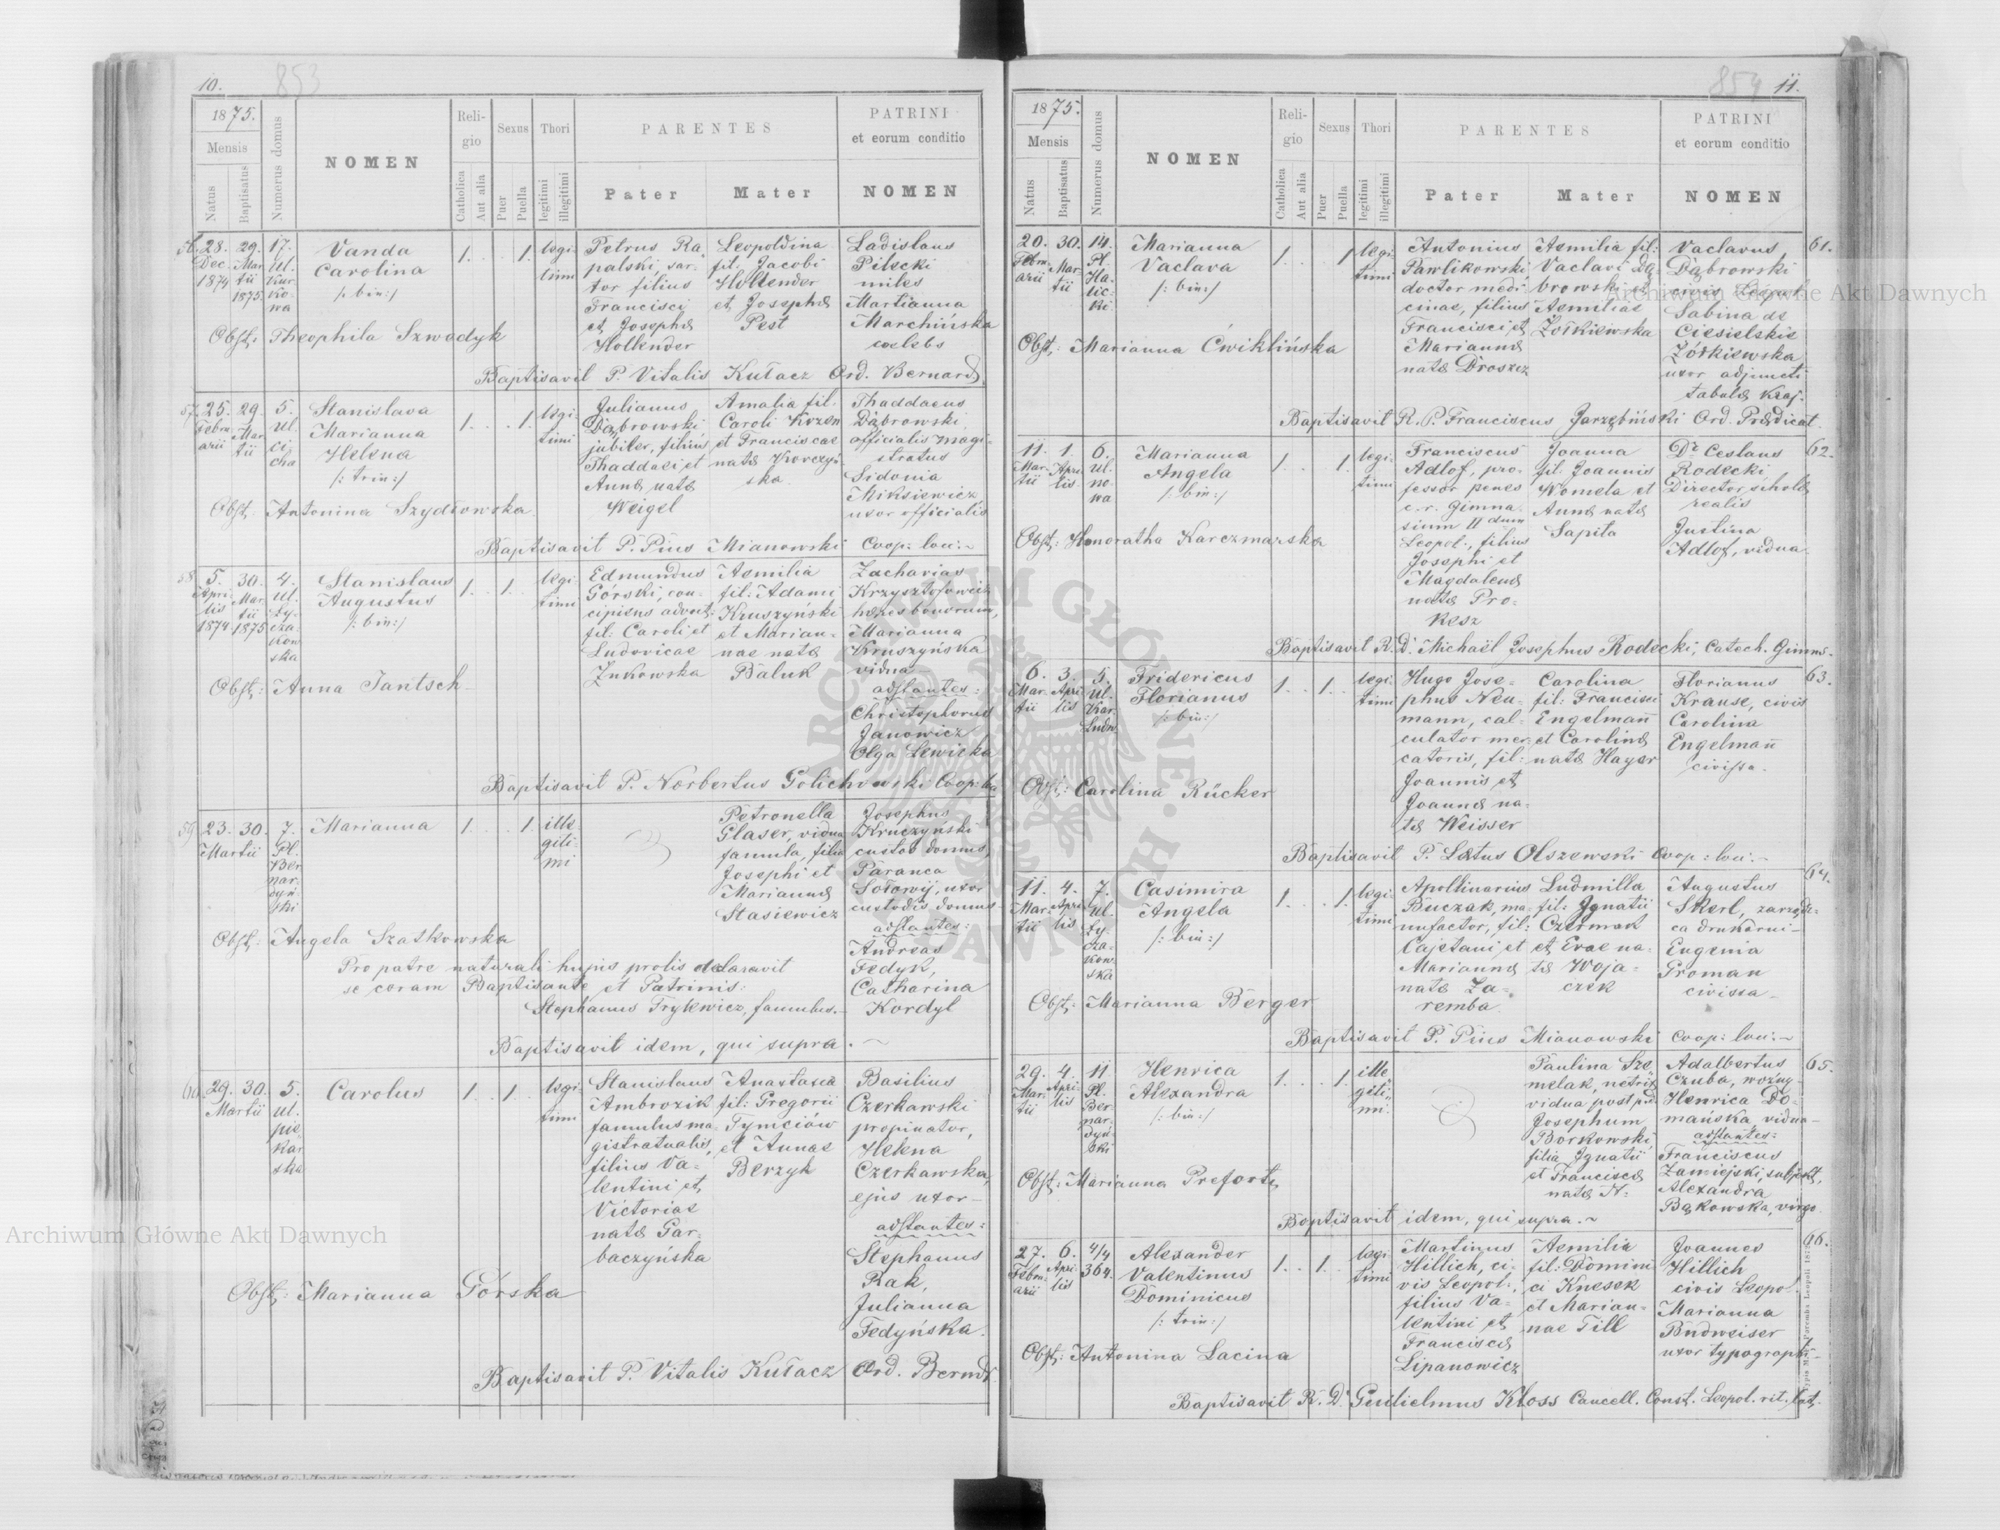 10.
853
1875.
Mensis
Natus
Baptisatus
Numerus domus
NOMEN
Religio
Catholica
Aut alia
Sexus
Puer
Puella
Thori
legitimi
illegitimi
PARENTES
Pater
Mater
PATRINI
et eorum conditio
NOMEN
56.
28.
Dec.
1874
29.
Mar
tii
1875.
17.
ul.
Kur
ko
wa
Vanda
Carolina
/: bin :/
1.
1.
legi
timi
Petrus Ra-
palski, sar-
tor filius
Francisci
et Josephæ
Hollender
Leopoldina
fil: Jacobi
Hollender
et Josephæ
Pest
Ladislaus
Pilecki
miles
Martianna
Marchińska
cœlebs
Obst: Theophila Szwadyk
Baptisavit P. Vitalis Kułacz Ord. Bernard.
57.
25.
Febru
arii
29.
Mar
tii
5.
ul.
Ci
cha
Stanislava
Marianna
Helena
/: trin :/
1.
1.
legi
timi
Julianus
Dąbrowski,
jubiler, filius
Thaddaei et
Annæ natæ
Weigel
Amalia fil.
Caroli Kozen
et Franciscae
natæ Korczyń
ska
Thaddaeus
Dąbrowski
officialis magi
stratus
Sidonia
Miksiewicz,
uxor officialis
Obst: Antonina Szydłowska.
Baptisavit P. Pius Mianowski Coop: loci.~
58
5.
Apri
lis
1874.
30.
Mar
tii
1875
4.
ul.
Ły-
cza-
kow
ska
Stanislaus
Augustus
/: bin :/
1.
1.
legi
timi
Edmundus
Górski, con-
cipiens advoct.
fil: Caroli et
Ludovicae
Żukowska
Aemilia
fil: Adami
Kruszyński
et Marian-
nae natæ
Baluk
Zacharias
Krzysztofowicz
hæres bonorum,
Marianna
Kruszyńska
vidua
adstantes:
Christophorus
Janowicz
Olga Lewicka
Obst: Anna Jantsch
Baptisavit P. Norbertus Golichowski Coop: loci
59.
23.
Martii
30.
7.
Pl.
Ber
nar-
dyń
ski
Marianna
1.
1.
ille
giti-
mi
Petronella
Glaser, vidua
famula, filia
Josephi et
Mariannæ
Stasiewicz
Josephus
Kruczyński
custos domus,
Paranca
Sołowij, uxor
custodis domus
adstantes:
Andreas
Fedyk,
Catharina
Kordyl
Obst: Angela Szatkowska
Pro patre naturali hujus prolis declaravit
se coram Baptisante et Patrinis:
Stephanus Frykewicz, famulus.
Baptisavit idem, qui supra.~
60.
29.
Martii
30.
5.
ul.
pie
kar
ska
Carolus
1.
1.
legi
timi
Stanislaus
Ambrozik
famulus ma-
gistratualis,
filius Va-
lentini et
Victoriae
natæ Gar-
baczyńska
Anastasia
fil: Gregorii
Tyniciów
et Annae
Berzyk
Basilius
Czerkawski
propinator,
Helena
Czerkawska,
ejus uxor
adstantes:
Stephanus
Rak,
Julianna
Fedyńska.
Obst: Marianna Górska
Baptisavit P. Vitalis Kułacz Ord. Bernd.
854
11.
1875.
Mensis
Natus
Baptisatus
Numerus domus
NOMEN
Religio
Catholica
Aut alia
Sexus
Puer
Puella
Thori
legitimi
illegitimi
PARENTES
Pater
Mater
PATRINI
et eorum conditio
NOMEN
20.
Febru
arii
30.
Mar
tii
14.
Pl.
Ha-
lic-
ki
Marianna
Vaclava
/: bin :/
1.
1.
legi
timi
Antonius
Pawlikowski
doctor medi
cinae, filius
Francisci et
Mariannæ
natæ Droszcz
Aemilia fil:
Vaclavi Dą-
browski et
Aemiliae
Żółkiewska
Vaclavus
Dąbrowski
civis Leopol.
Sabina de
Ciesielskie
Żółkiewska
uxor adjuncti
tabulæ Kraj.
61.
Obst: Marianna Ćwiklińska
Baptisavit R. P. Franciscus Jarzębiński Ord. Prædicat.
11.
Mar
tii
1.
Apri
lis
6.
ul.
no-
wa
Marianna
Angela
/: bin :/
1.
1
legi
timi
Franciscus
Adlof, pro-
fessor penes
c. r. Gimna-
sium II dum
Leopol., filius
Josephi et
Magdalenæ
natæ Pro-
kesz
Joanna
fil: Joannis
Womela et
Annæ natæ
Sapita
Dr Ceslaus
Rodecki
Director scholæ
realis
Justina
Adlof, vidua.
62.
Obst: Honoratha Karczmarska
Baptisavit R. D. Michaël Josephus Rodecki, Catech. Gimns.
6.
Mar
tii
3.
Apri
lis
5.
ul.
Kar.
Ludw.
Fridericus
Florianus
/: bin :/
1.
1.
legi
timi
Hugo Jose-
phus Neu-
mann, cal-
culator mer-
catoris, fil:
Joannis et
Joannæ na-
tæ Weisser
Carolina
fil: Francisci
Engelmañ
et Carolinæ
natæ Hayer
Florianus
Krause, civis
Carolina
Engelmañ
civissa.
63.
Obst: Carolina Rücker
Baptisavit P. Lætus Olszewski Coop: loci.~
11.
Mar
tii
4.
Apri
lis
7.
ul.
Ły-
cza-
kow
ska
Casimira
Angela
/: bin :/
1.
1.
legi
timi
Apollinarius
Buczak, ma-
nufactor, fil:
Cajetani et
Mariannæ
natæ Za-
remba
Ludmilla
fil: Ignatii
Czermak
et Evae na-
tæ Woja-
czek
Augustus
Skerl, zarząd-
ca drukarni
Eugenia
Groman
civissa
64.
Obst: Marianna Berger
Baptisavit P. Pius Mianowski Coop: loci.~
29.
Mar
tii
4.
Apri
lis
11
Pl.
Ber-
nar-
dyń
ski
Henrica
Alexandra
/: bin :/
1.
1.
ille
giti
mi.
Paulina Sze
melak, netrix
vidua post pd.
Josephum
Borkowski
filia Ignatii
et Franciscæ
natæ N.
Adalbertus
Czuba, woźny
Henrica Do-
mańska, vidua
adstantes:
Franciscus
Zamojski, subject,
Alexandra
Bąkowska, virgo
65.
Obst: Marianna Preforts
Baptisavit idem, qui supra.~
27.
Febru
arii
6.
Apri
lis
4/4
364.
Alexander
Valentinus
Dominicus
/: trin :/
1.
1.
legi
timi
Martinus
Hillich, ci-
vis Leopol.
filius Va-
lentini et
Franciscæ
Lipanowicz
Aemilia
fil: Domini
ci Knesek
et Marian-
nae Till
Joannes
Hillich
civis Leopol
Marianna
Budweiser
uxor typographi
66.
Obst: Antonina Lacina
Baptisavit R. D. Guilielmus Kloss Cancell. Const. Leopol. rit. lat.
Archiwum Główne Akt Dawnych
Archiwum Główne Akt Dawnych
ARCHIWUM GŁÓWNE AKT DAWNYCH